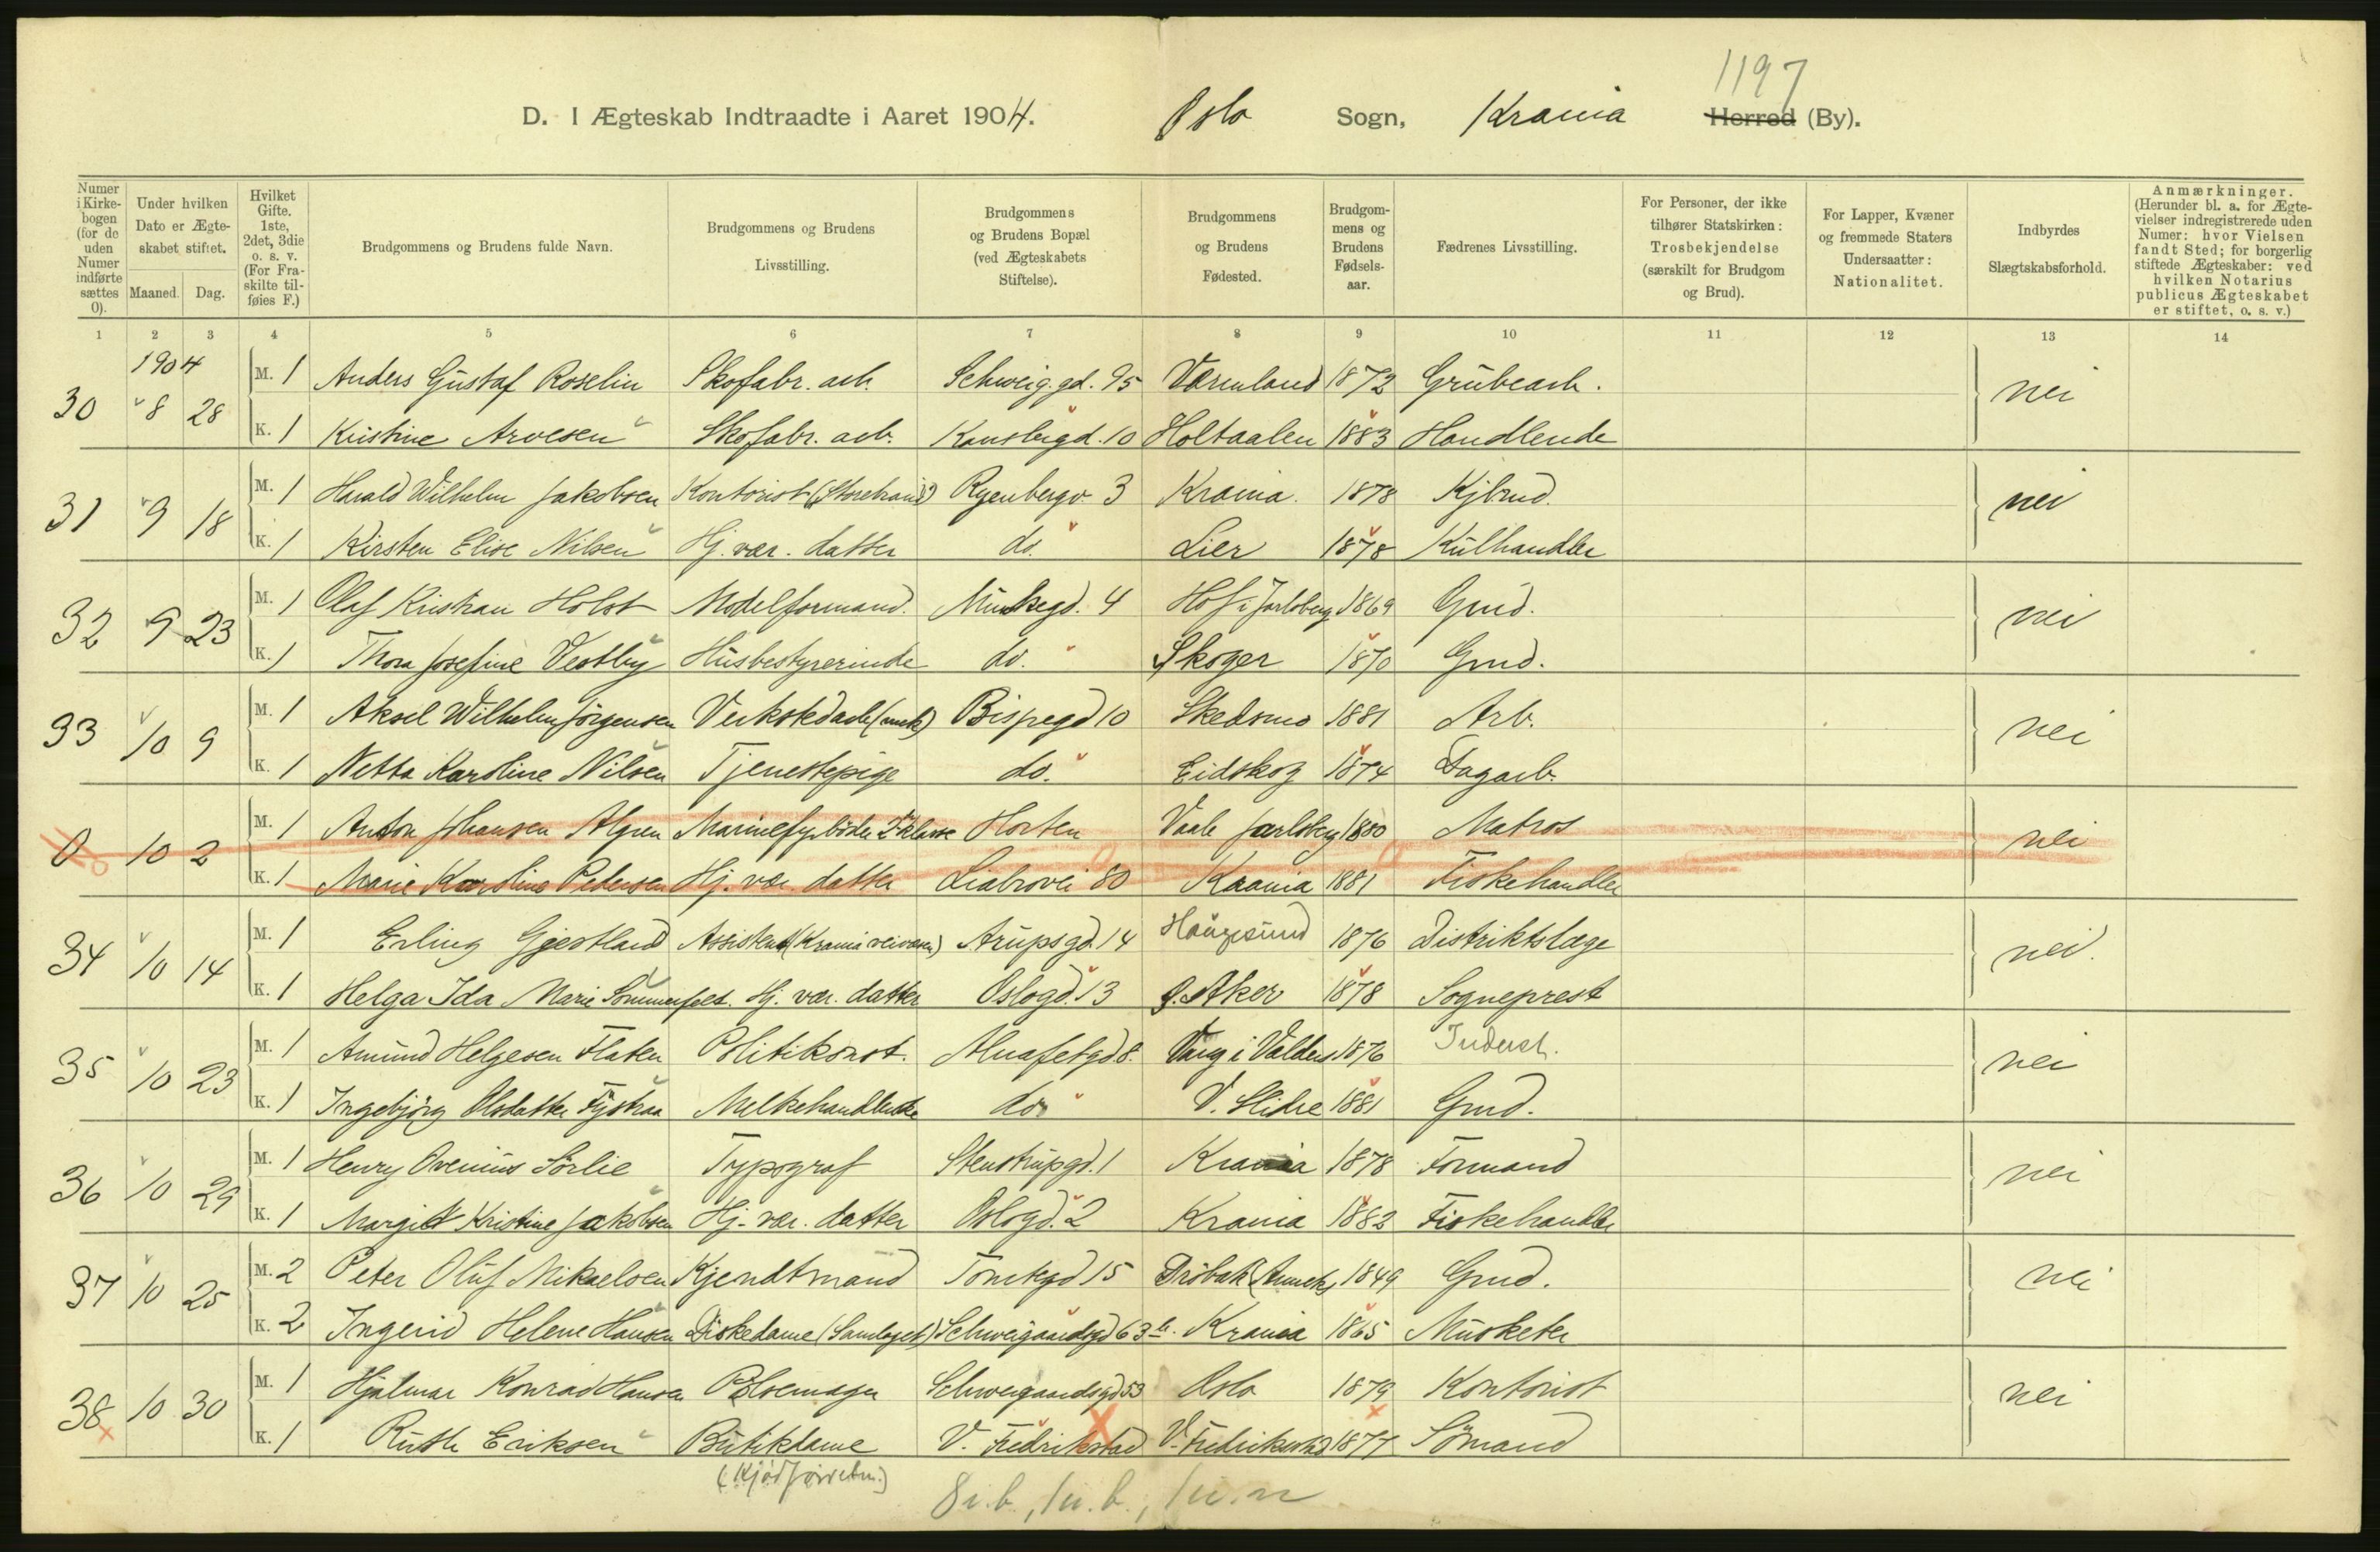 1197
D. I Ægteskab Indtraadte i Aaret 1904. Oslo Sogn, Krania Herred (By).
Numer i Kirkebogen (for de uden Numer indførte sættes 0).
Under hvilken Dato er Ægteskabet stiftet. Maaned. Dag.
Hvilket Gifte. 1ste, 2det, 3die o. s. v. (For Fraskilte tilføies F.)
Brudgommens og Brudens fulde Navn.
Brudgommens og Brudens Livsstilling.
Brudgommens og Brudens Bopæl (ved Ægteskabets Stiftelse).
Brudgommens og Brudens Fødested.
Brudgommens og Brudens Fødselsaar.
Fædrenes Livsstilling.
For Personer, der ikke tilhører Statskirken: Trosbekjendelse (særskilt for Brudgom og Brud).
For Lapper, Kvæner og fremmede Staters Undersaatter: Nationalitet.
Indbyrdes Slægtskabsforhold.
Anmærkninger. (Herunder bl. a. for Ægtevielser indregistrerede uden Numer: hvor Vielsen fandt Sted; for borgerlig stiftede Ægteskaber: ved hvilken Notarius publicus Ægteskabet er stiftet, o. s. v.)
1 2 3 4 5 6 7 8 9 10 11 12 13 14
1904
M. 1 Anders Gustaf Roselin Skofabr. arb. Schweig.gd. 95 Värmland 1872 Grubearb.
30 8 28 nei
K. 1 Kristine Arvesen Skofabr. arb. Kanslergd. 10 Holtaalen 1883 Handlende
M. 1 Harald Wilhelm Jakobsen Kontorist Ryenbergv. 3 Krania. 1878 Kjbmd.
31 9 18 nei
K. 1 Kirsten Elise Nilsen Hj. vær. datter do. Lier 1878 Kulhandler
M. 1 Olaf Kristian Holst Modelformand. Munkegd. 4 Hof i Jarlsberg 1869 Gmd.
32 9 23 nei
K. 1 Thora Josefine Vestby Husbestyrerinde do. Skoger 1870 Gmd.
M. 1 Aksel Wilhelm Jörgensen Verkstedarb (mek) Bispegd 10 Skedsmo 1881 Arb.
33 10 9 nei
K. 1 Netta Karoline Nilsen Tjenestepige do. Eidskog 1874 Dagarb.
M. 1 Anton Johansen Algren Marinefyrböder 2den klasse Horten Vaale Jarlsberg 1880 Matros
0 10 2 nei
K. 1 Marie Karoline Pedersen Hj. vær. datter Liabrovei 80 Krania 1881 Fiskehandler
M. 1 Erling Gjestland Assistent (Krania veivæsen) Arupsgd. 14 Haugesund 1876 Distriktslæge
34 10 14 nei.
K. 1 Helga Ida Marie Sommerfelt. Hj. vær. datter Oslogd. 13 Ø. Aker 1878 Sogneprest
M. 1 Amund Helgesen Flaten Politikonst. Alnafetgd 8. Vang i Valders 1876 Inderst.
35 10 23 nei
K. 1 Ingebjörg Olsdatter Melkehandlerske do. V. Slidre 1881 Gmd.
M. 1 Henry Ovenius Sörlie Typograf Stenstrupgd. 1 Krania 1878 Formand
36 10 29 nei
K. 1 Margit Kristine Jakobsen Hj. vær. datter Oslogd. 2 Krania 1882 Fiskehandler
M. 2 Peter Oluf Mikaelsen Kjendtmand Tomtegd 15 Dröbak (Anneks) 1849 Gmd.
37 10 25 nei
K. 2 Ingerid Helene Hansen Diskedame (Samlaget) Schweigaardsgd 63 b. Krania 1865 Musketer
M. 1 Hjalmar Konrad Hansen Pölsemager Schweigaardsgd 53 Oslo 1879 Kontorist
38 10 30 nei
K. 1 Ruth Eriksen Butikdame V. Fredrikstad V. Fredrikstad 1877 Sömand
8 i.b., 1 u.b., 1 u.n